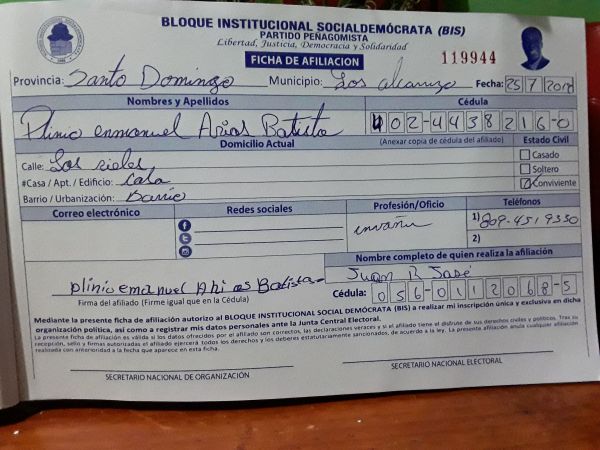 BLOQUE INSTITUCIONAL SOCIALDEMÓCRATA (BIS)
PARTIDO PEÑAGOMISTA
Libertad, Justicia, Democracia y Solidaridad
FICHA DE AFILIACION
119944
Provincia: Santo Domingo Municipio: Los alcarrizo Fecha: 25 7 2017
Nombres y Apellidos Cédula
Plinio enmanuel Arias Batista 402-4438216-0
Domicilio Actual (Anexar copia de cédula del afiliado) Estado Civil
Calle: Los rieles Casado
#Casa / Apt. / Edificio: Casa Soltero
Barrio / Urbanización: Barrio Conviviente
Correo electrónico Redes sociales Profesión/Oficio Teléfonos
1) 809-451 9350
2)
Nombre completo de quien realiza la afiliación
Juan R José
plinio emanuel Ari as Batista
Firma del afiliado (Firme igual que en la Cédula) Cédula: 056-0112068-5
Mediante la presente ficha de afiliación autorizo al BLOQUE INSTITUCIONAL SOCIAL DEMÓCRATA (BIS) a realizar mi inscripción única y exclusiva en dicha
organización política, así como a registrar mis datos personales ante la Junta Central Electoral.
La presente ficha de afiliación es válida si los datos ofrecidos por el afiliado son correctos, las declaraciones veraces y si el afiliado tiene el disfrute de sus derechos civiles y políticos. Tras su
recepción, sello y firmas autorizadas el afiliado ejercerá todos los derechos y los deberes estatutariamente sancionados, de acuerdo a la ley. La presente afiliación anula cualquier afiliación
realizada con anterioridad a la fecha que aparece en esta ficha.
SECRETARIO NACIONAL DE ORGANIZACIÓN SECRETARIO NACIONAL ELECTORAL